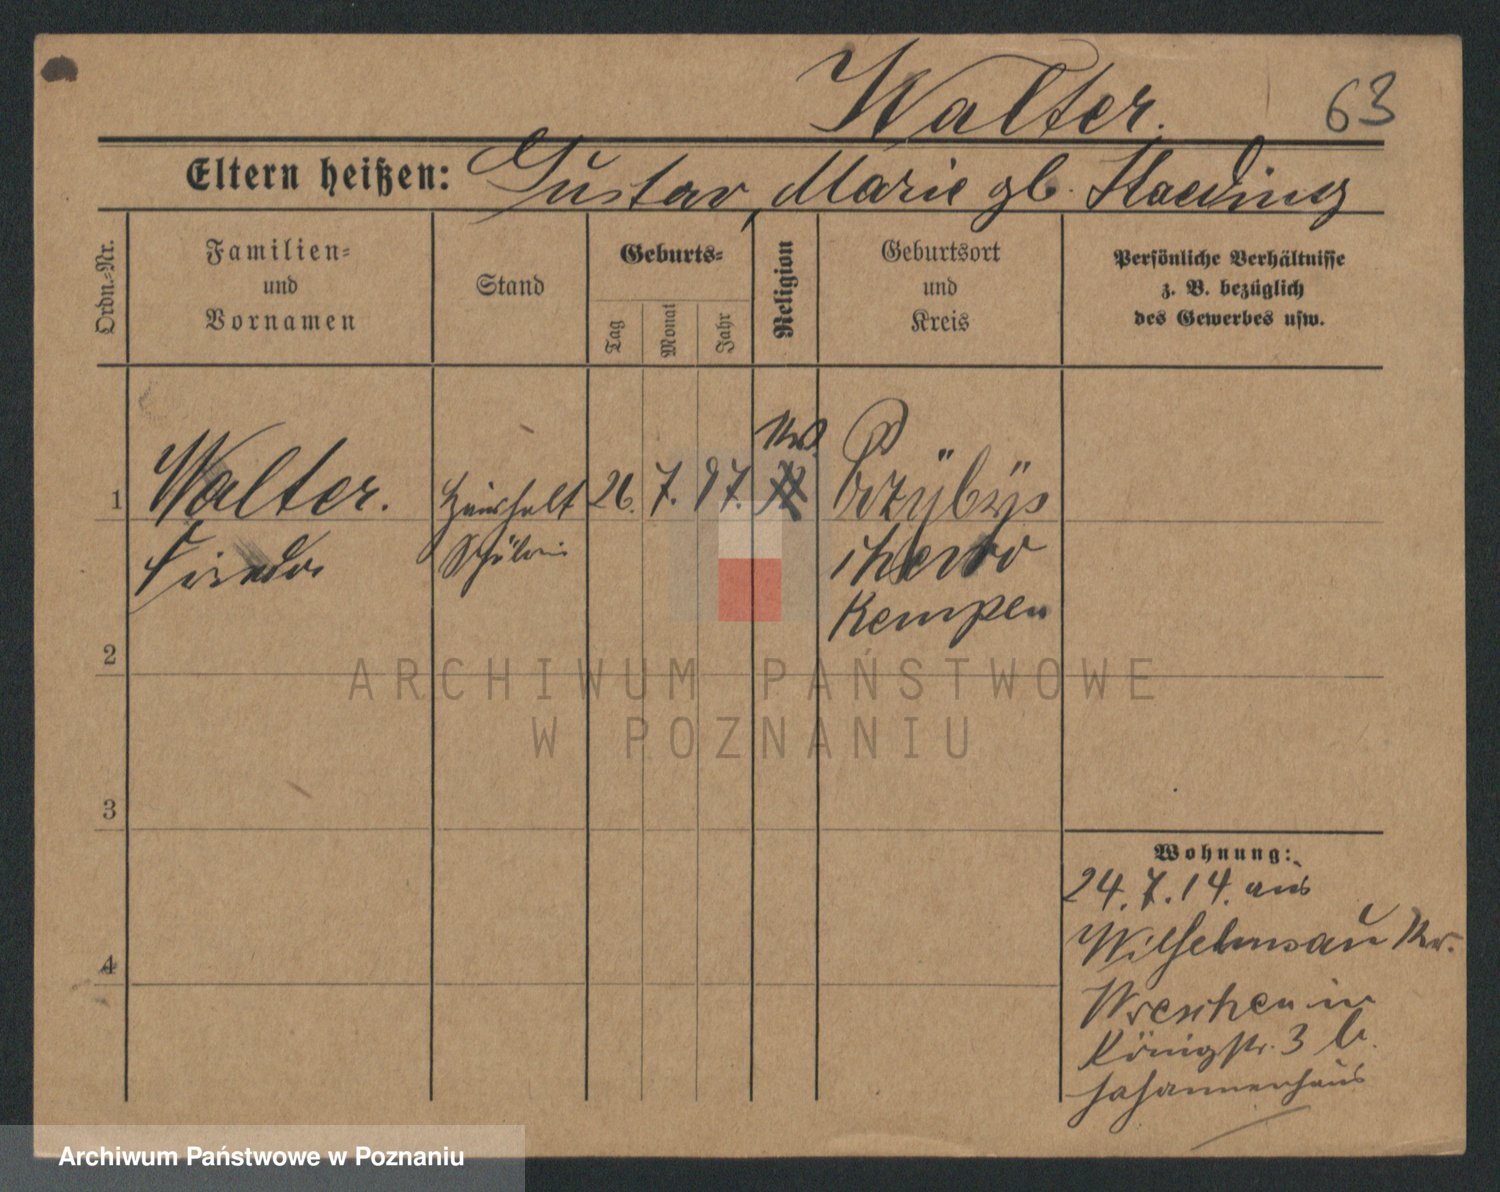 Walter. 63
Eltern heißen: Gustav, Marie gb. Haeding
Ordn.-Nr.
Familien-
und
Vornamen
Stand
Geburts-
Tag
Monat
Jahr
Religion
Geburtsort
und
Kreis
Persönliche Verhältnisse
z. B. bezüglich
des Gewerbes usw.
1 Walter. Haushalt 26. 7. 97.
Frieda Schülerin
Kempen
2
3
4
Wohnung:
24.7.14. aus
Wilhelmsau Kr.
Wreschen in
Königstr. 3 b.
Johannenhaus
ARCHIWUM PAŃSTWOWE
W POZNANIU
Archiwum Państwowe w Poznaniu